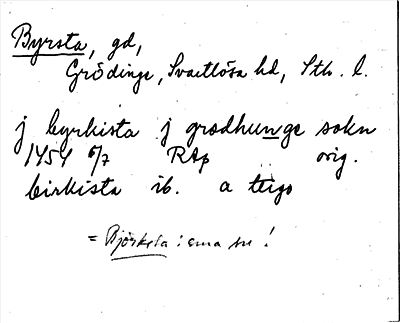 Byrsta, gd,
Grödinge, Svartlösa hd, Sth. l.
j byrkista j grødhunge sokn
1454 6/7 RAp orig.
birkista ib. a teigo
= Björksta : sma sn !